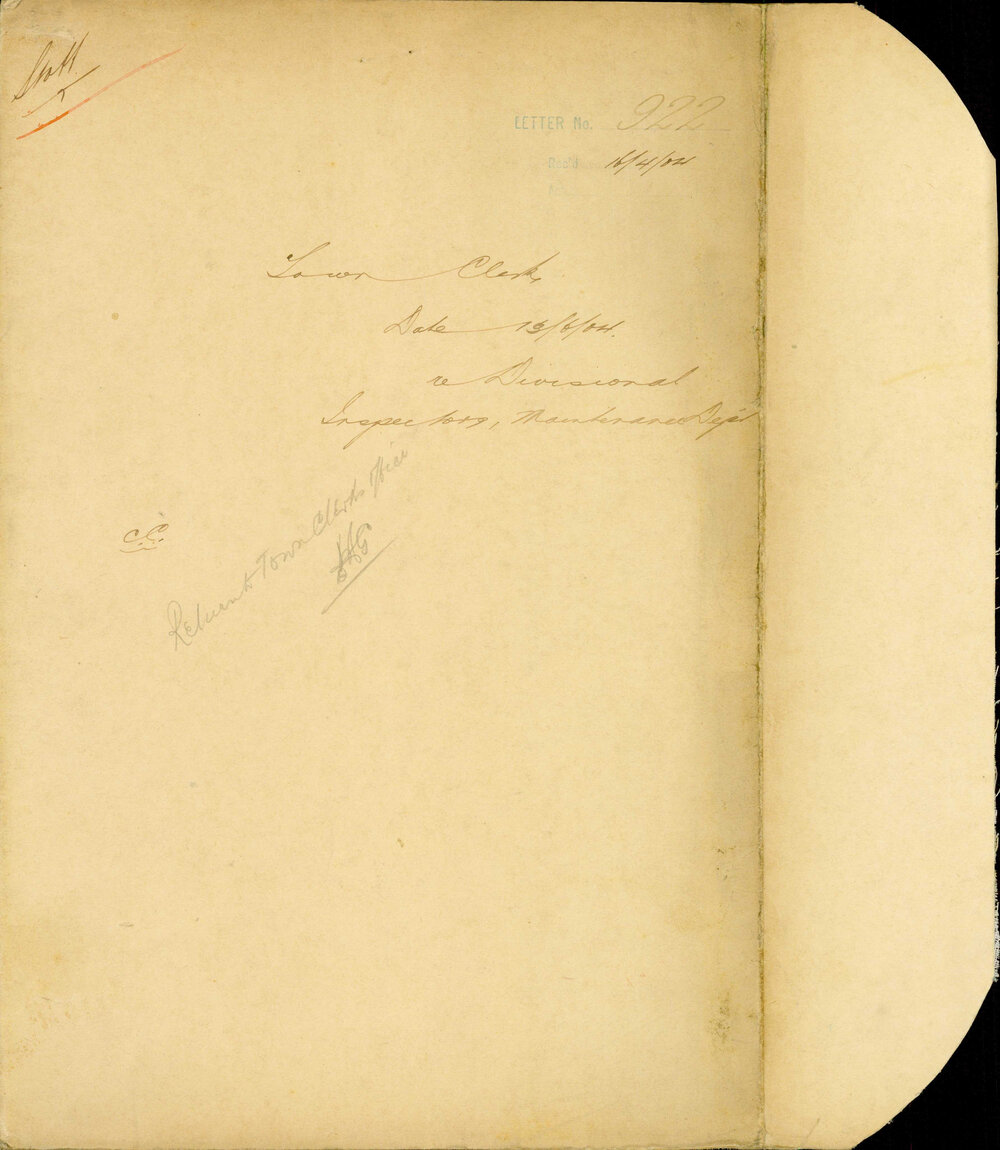 Staff
LETTER No. 922
Rec'd 16/4/04
Town Clerk,
Date 13/6/04.
re Divisional
Inspectors, Maintenance Dept
C.C.
Return to Town Clerks Office